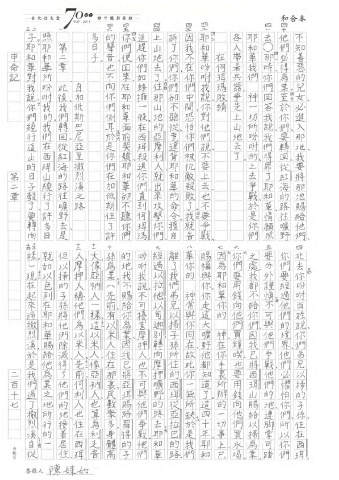 一 在地信主會 7000 聯手護苗展望
和合本
不知善惡的兒女必進入那地我要將那地賜給他們
他們必得為業至於你們要轉回從紅海的路往曠野
去那時你們回答我說我們得罪了耶和華情願照
耶和華我們 神一切所吩咐的上去爭戰於是你們
各人帶著兵器爭先上山地去了
在何珥瑪敗績
耶和華吩咐我說你對他們說不要上去也不要爭戰
因我不在你們中間恐怕你們被仇敵殺敗了我就告
訴了你們你們卻不聽從竟違背耶和華的命令擅自
上山地去了住那山地的亞摩利人就出來攻擊你們
追趕你們如蜂擁一般在西珥殺退你們直到何珥瑪
你們便回來在耶和華面前哭號耶和華卻不聽你們
的聲音也不向你們側耳於是你們在加低斯住了許
多日子
自加低斯尼亞至撒烈溪之路
第二章
此後我們轉回從紅海的路往曠野去是
照耶和華所吩咐我的我們在西珥山繞行了許多日
子耶和華對我說你們繞行這山的日子夠了要轉向
北去你吩咐百姓說你們弟兄以掃的子孫住在西珥
你們要經過他們的境界他們必懼怕你們所以你們
要分外謹慎不可與他們爭戰他們的地連腳掌可踏
之處我都不給你們因我已將西珥山賜給以掃為業
你們要用錢向他們買糧吃也要用錢向他們買水喝
因為耶和華你的 神在你手裡所辦的一切事上已
賜福與你你走這大曠野他都知道了這四十年耶和
華你的 神常與你同在故此你一無所缺於是我們
離了我們弟兄以掃子孫所住的西珥從亞拉巴的路
經過以拉他以旬迦別轉向摩押曠野的路去耶和華
吩咐我說不可擾害摩押人也不可與他們爭戰他們
的地我不賜給你為業因我已將亞珥賜給羅得的子
孫為業先前有以米人住在那裡民數眾多身體高
大像亞衲人一樣這以米人像亞衲人也算為利乏音
人摩押人稱他們為以米人先前何利人也住在西珥
但以掃的子孫將他們除滅得了他們的地接著居住
就如以色列在耶和華賜給他為業之地所行的一
樣現在起來過撒烈溪於是我們過了撒烈溪自從
申命記
第二章
二百十七